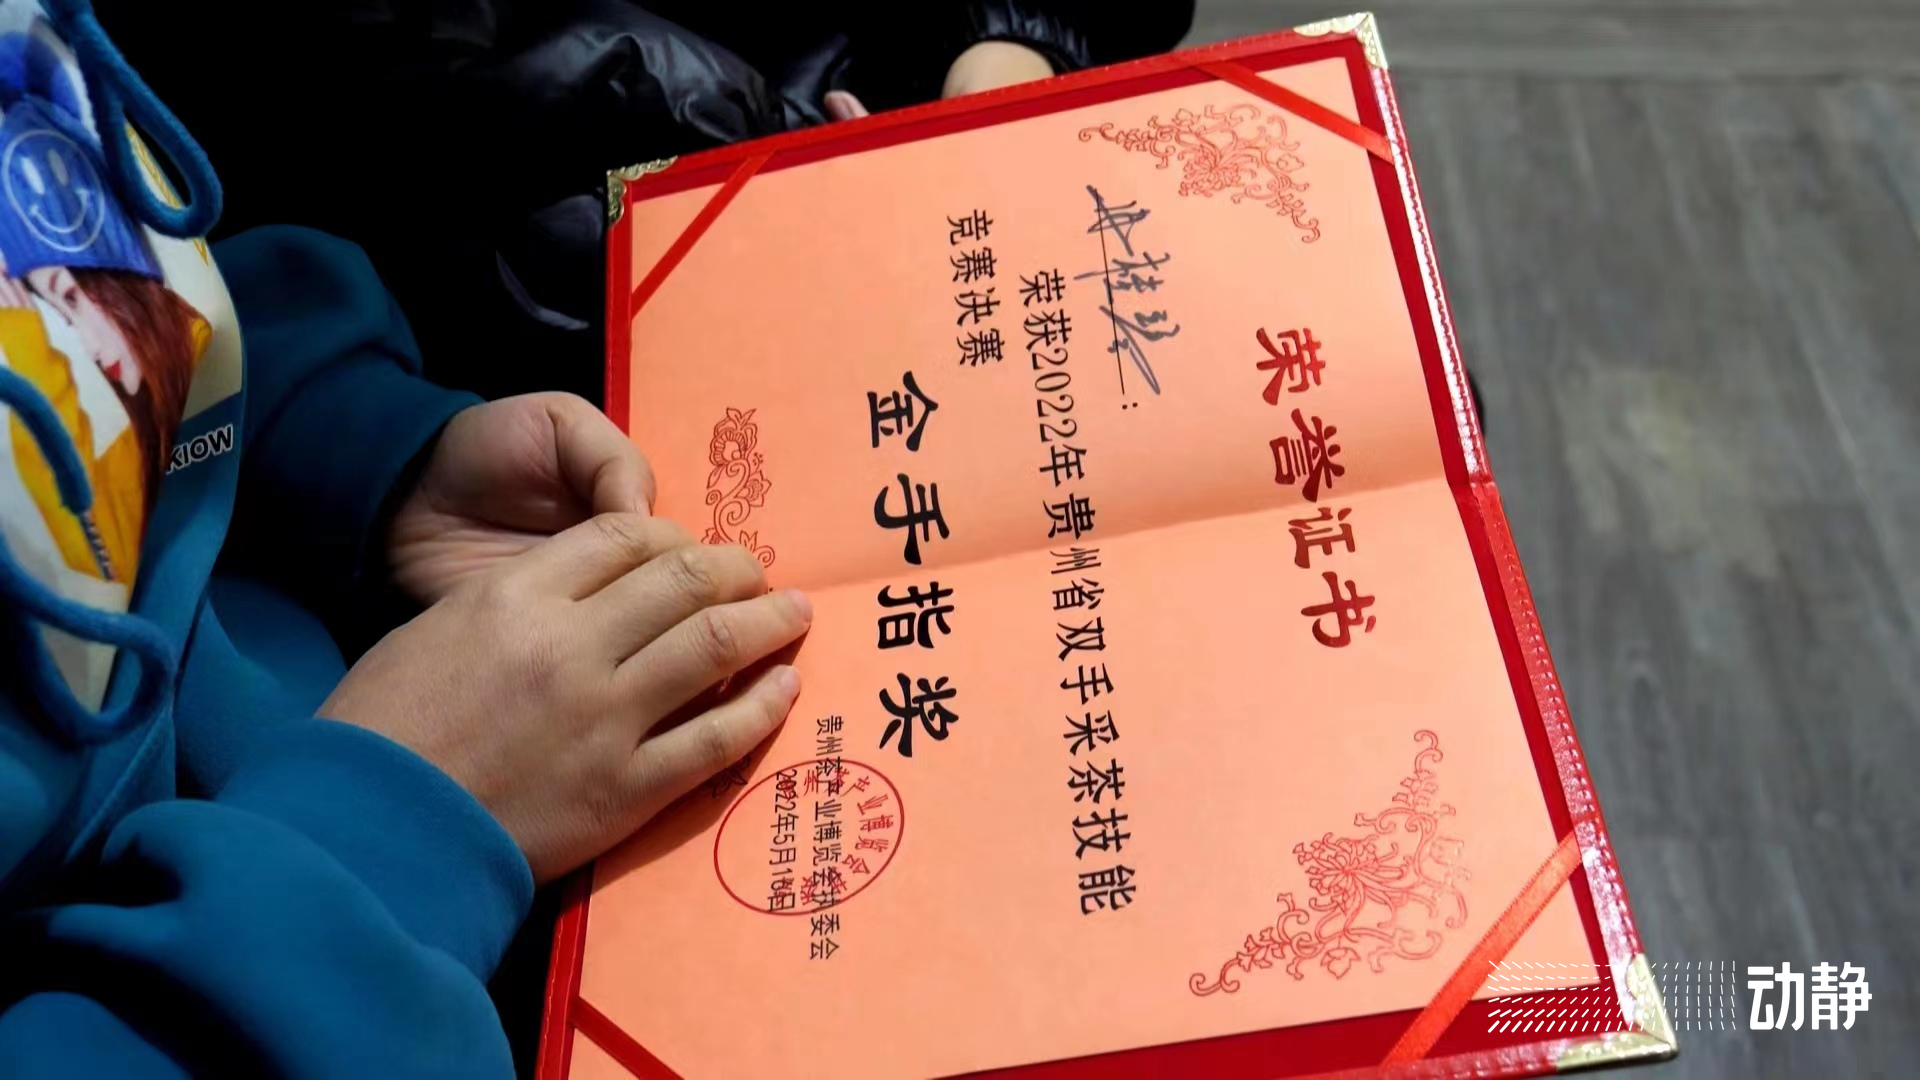 荣誉证书
荣获2022年贵州省双手采茶技能
竞赛决赛
金手指奖
贵州茶产业博览会执委会
2022年5月16日
KIOW
动静